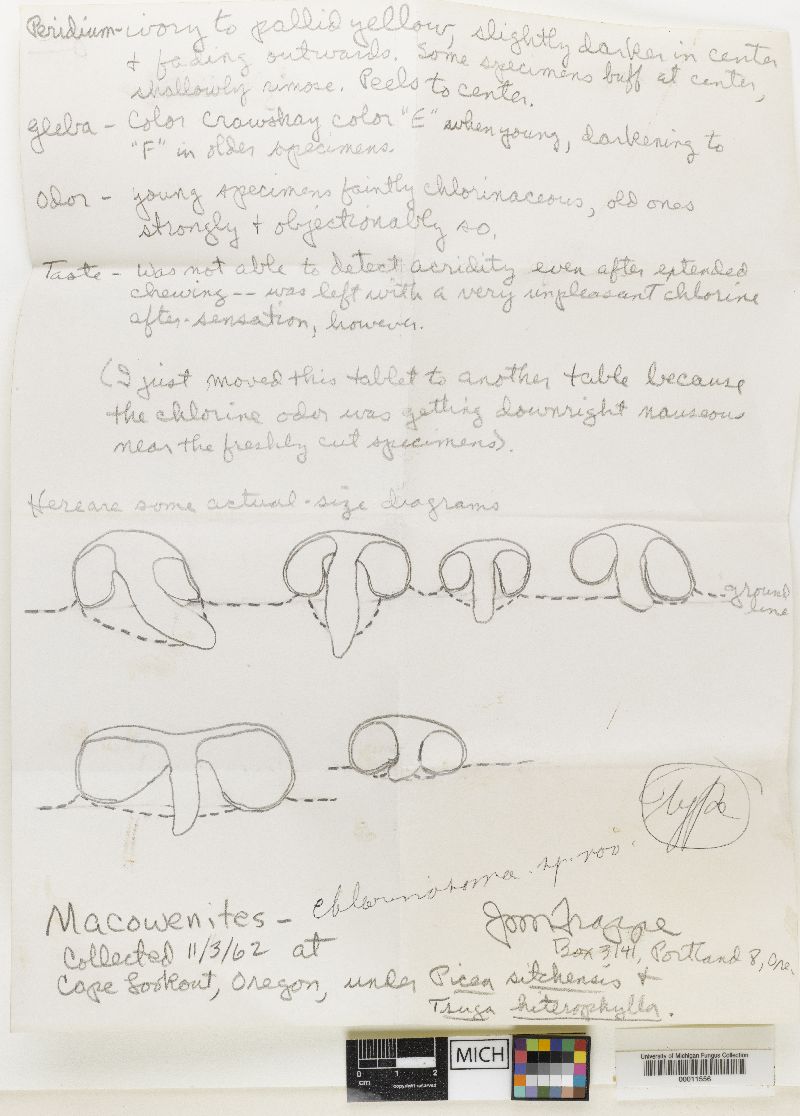 Peridium - ivory to pallid yellow, slightly darker in center
+ fading outwards. Some specimens buff at center,
shallowly rimose. Peels to center.
gleba - Color Crawshay color "E" when young, darkening to
"F" in older specimens.
Odor - young specimens faintly chlorinaceous, old ones
strongly + objectionably so.
Taste - was not able to detect acridity even after extended
chewing -- was left with a very unpleasant chlorine
after-sensation, however.
(I just moved this tablet to another table because
the chlorine odor was getting downright nauseous
near the freshly cut specimens).
Here are some actual-size diagrams
ground
line
Type
Macowenites - chlorinosma sp. nov.
Collected 11/3/62 at
Cape Lookout, Oregon, under Picea sitchensis +
Tsuga heterophylla.
Jim Trappe
Box 3141, Portland 8, Ore.
0 1 2
cm
copyright reserved
MICH
University of Michigan Fungus Collection
00011556